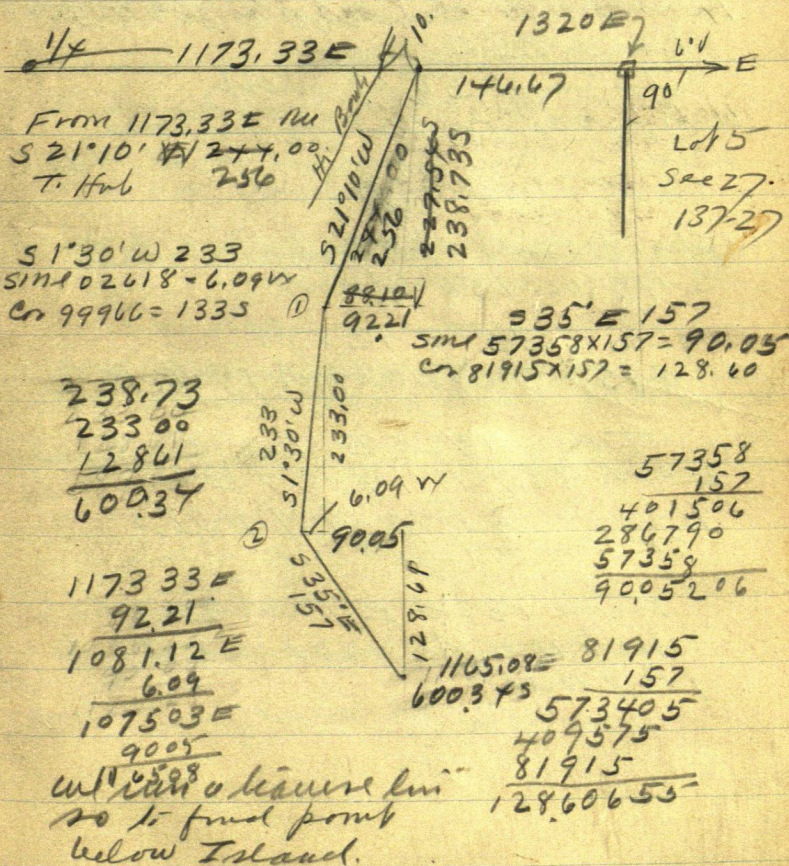 1/4 1173.33 E 10. 1320 E E
146.67 90°
From 1173.33 E
S 21°10' W 244.00
T. Hub 256
Hi Bank
S 21°10' W
244.00
256
238.73 S
Lot 5
Sec 27.
137-27
S 1°30' W 233
sine 02618 = 6.09 W
Cos 99966 = 133 S
① 88.10
92.21
S 35° E 157
sine 57358 x 157 = 90.05
Cos 81915 x 157 = 128.60
238.73
233 00
128 61
600.34
233
S 1°30' W
233.00
6.09 W
② 90.05
S 35° E
157
128.61
1165.08 E
600.34 S
57358
157
401506
286790
57358
90.05206
1173 33 E
92.21
1081.12 E
6.09
1075 03 E
90 05
81915
157
573405
409575
81915
128.60655
run a traverse line
so to find point
below Island.